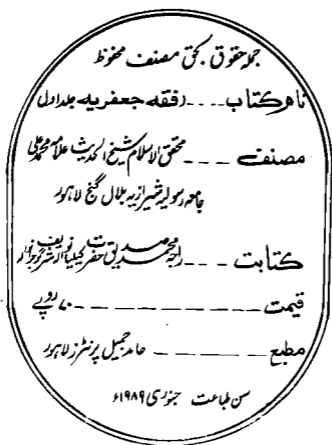 جملہ حقوق بحق مصنف محفوظ
نام کتاب ---- فقہ جعفریہ جلد اول
مصنف ---- محقق الاسلام شیخ الحدیث علامہ محمد علی
جامعہ رسولیہ شیرازیہ بلال گنج لاہور
کتابت ---- محمد صدیق حضرت کیلیانوالہ شریف گوجرانوالہ
قیمت ---- ۷۰ روپے
مطبع ---- حامد جمیل پرنٹرز لاہور
سن طباعت جنوری ۱۹۸۹ء